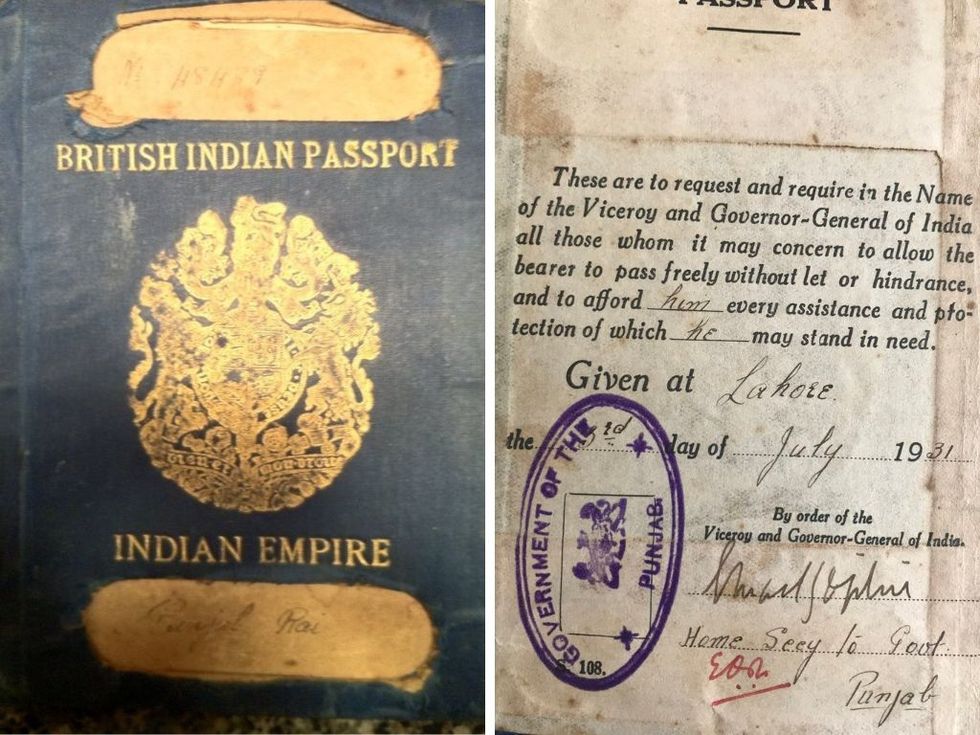 No 48479
BRITISH INDIAN PASSPORT
INDIAN EMPIRE
Rai
PASSPORT
These are to request and require in the Name
of the Viceroy and Governor-General of India
all those whom it may concern to allow the
bearer to pass freely without let or hindrance,
and to afford him every assistance and pro-
tection of which he may stand in need.
Given at Lahore.
the 3rd day of July 1931
GOVERNMENT OF THE PUNJAB.
By order of the
Viceroy and Governor-General of India.
Home Secy to Govt.
Punjab
108.